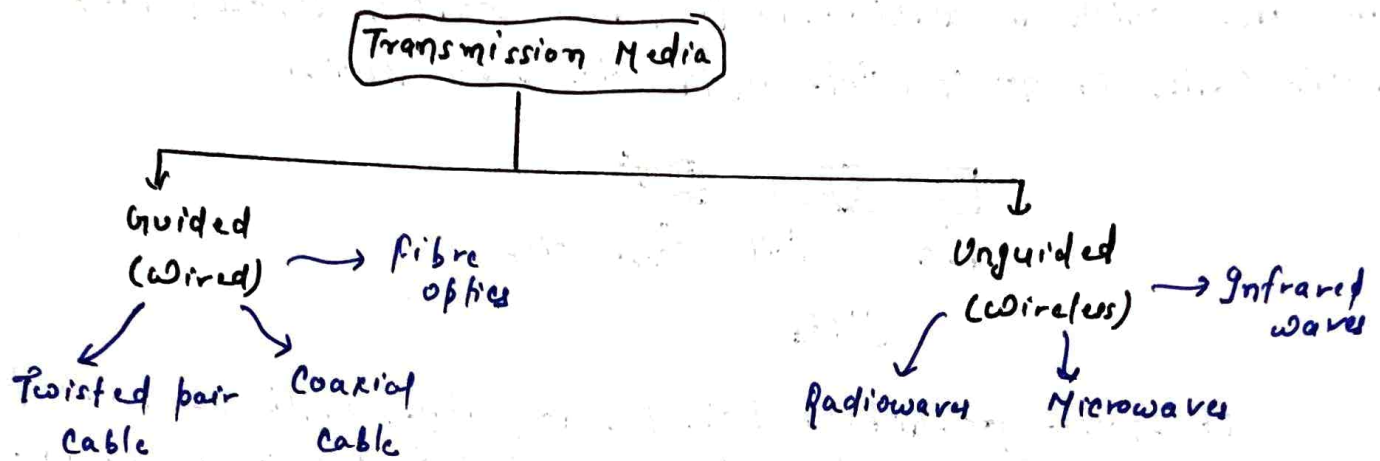 Transmission Media
Guided
(Wired)
fibre
optics
Twisted pair
Cable
Coaxial
Cable
Unguided
(Wireless)
Infrared
waves
Radiowaves
Microwaves